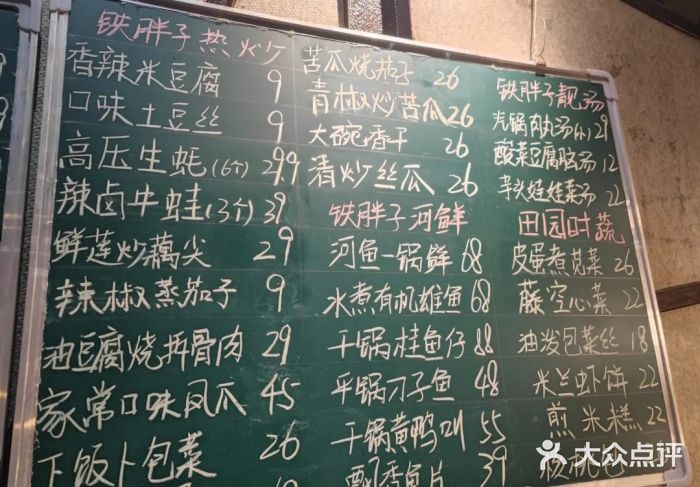 铁胖子热炒
香辣米豆腐 9
口味土豆丝 9
高压生蚝(6个) 299
辣卤牛蛙(3个) 39
鲜莲炒藕尖 29
辣椒蒸茄子 9
油豆腐烧排骨肉 29
家常口味凤爪 45
下饭卜包菜 26
苦瓜烧茄子 26
青椒炒苦瓜 26
大碗香干 26
清炒丝瓜 26
铁胖子河鲜
河鱼一锅鲜 68
水煮有机雄鱼 68
干锅桂鱼仔 88
平锅刁子鱼 48
干锅黄鸭叫 55
飘香鱼片 39
铁胖子靓汤
汽锅肉丸汤 29
酸菜豆腐脑汤 12
芋头娃娃菜汤 22
田园时蔬
皮蛋煮苋菜 26
藤空心菜 22
油泼包菜丝 18
米兰虾饼 22
煎米糕 22
大众点评